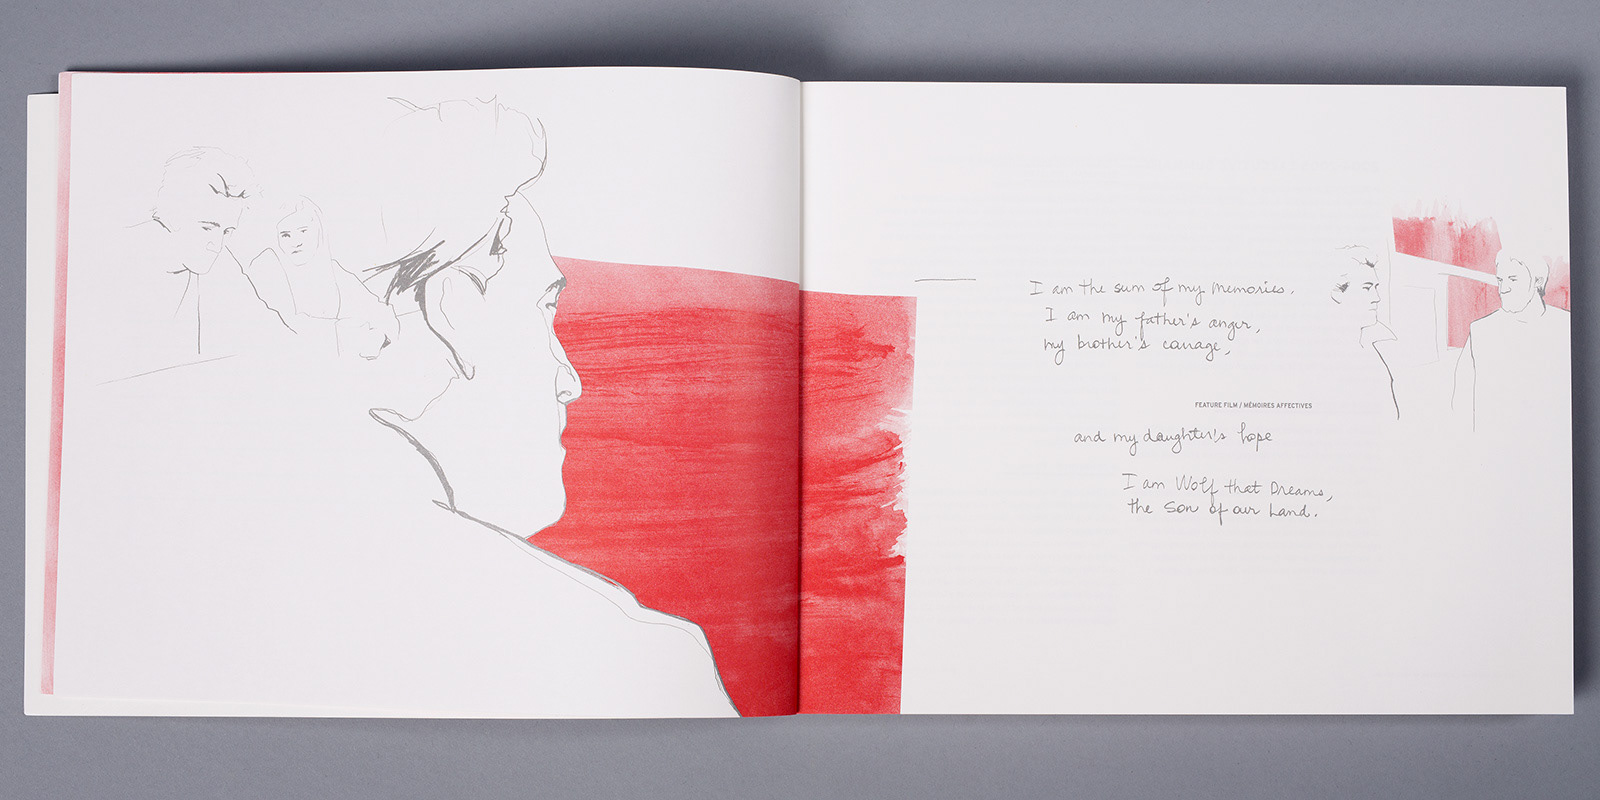 I am the sum of my memories.
I am my father's anger,
my brother's courage,
FEATURE FILM / MÉMOIRES AFFECTIVES
and my daughter's hope
I am Wolf that Dreams,
the Son of our Land.